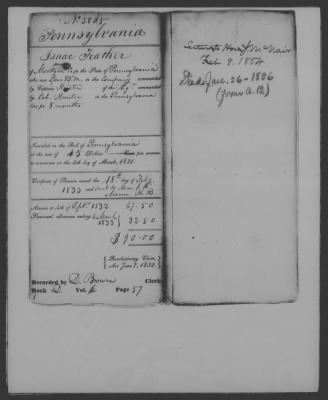 No 5805
Pennsylvania
Isaac Feather
of in the State of Pennsylvania
who was a in the Company commanded
by Captain of the Reg't commanded
by Col. in the Pennsylvania
line for 8 months
Inscribed on the Roll of Pennsylvania
at the rate of 45 Dollars per annum,
to commence on the 4th day of March, 1831.
Certificate of Pension issued the 18th day of
1833 and sent to Hon.
Arrears to 4th of Sept. 1832 67.50
Semi-annual allowance ending March
1833 22.50
$ 90.00
Revolutionary Claim,
Act June 7, 1832.
Recorded by D. Brown Clerk
Book D Vol. Page 57
Letter to Hon. J. McNair
Feb 8. 1854
Died Jan. 26 - 1836
(From A.B.)